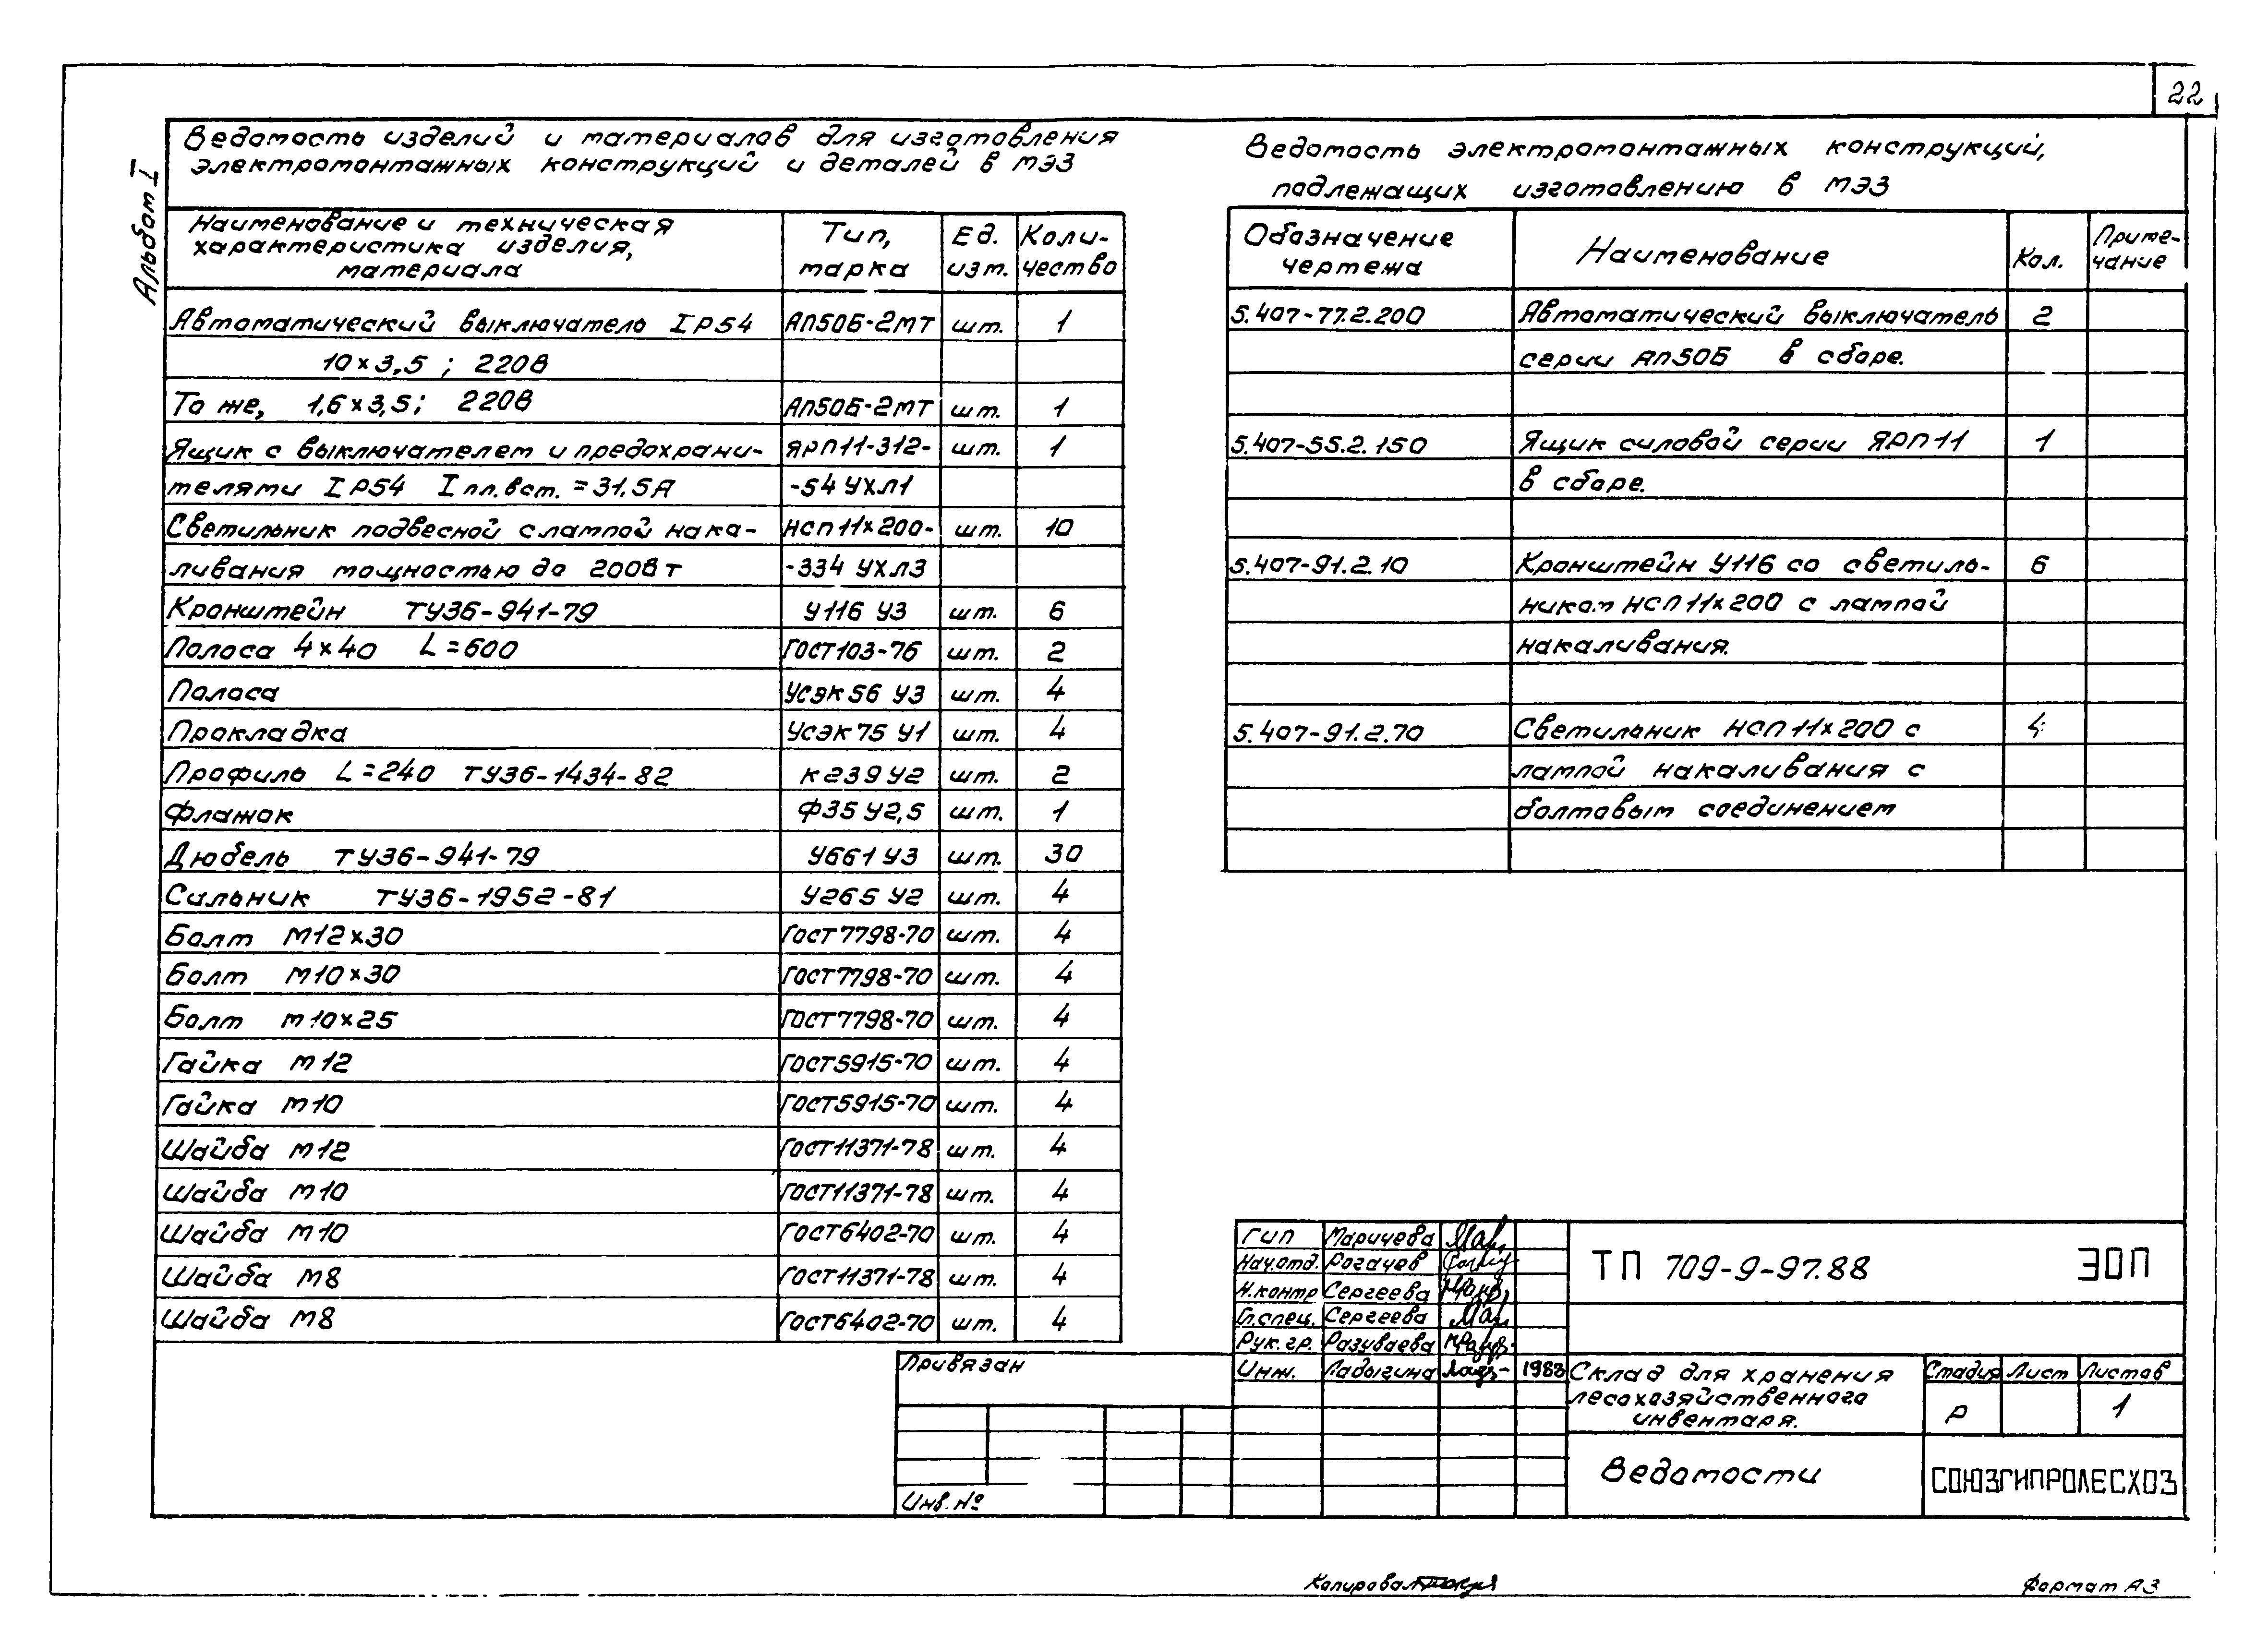 22
Альбом I
Ведомость изделий и материалов для изготовления
электромонтажных конструкций и деталей в МЭЗ
Наименование и техническая характеристика изделия, материала | Тип, марка | Ед. изм. | Количество
Автоматический выключатель IP54 АП50Б-2МТ шт. 1
10×3,5 ; 220В
То же, 1,6×3,5; 220В АП50Б-2МТ шт. 1
Ящик с выключателем и предохрани- ЯРП11-312- шт. 1
телями IP54 I пл.вст. = 31.5А -54 УХЛ1
Светильник подвесной с лампой нака- НСП11×200- шт. 10
ливания мощностью до 200Вт -334 УХЛ3
Кронштейн ТУ36-941-79 У116 У3 шт. 6
Полоса 4×40 L=600 ГОСТ103-76 шт. 2
Полоса УСЭК56 У3 шт. 4
Прокладка УСЭК75 У1 шт. 4
Профиль L=240 ТУ36-1434-82 К239У2 шт. 2
Флажок Ф35 У2,5 шт. 1
Дюбель ТУ36-941-79 У661 У3 шт. 30
Сальник ТУ36-1952-81 У265 У2 шт. 4
Болт М12×30 ГОСТ7798-70 шт. 4
Болт М10×30 ГОСТ7798-70 шт. 4
Болт М10×25 ГОСТ7798-70 шт. 4
Гайка М12 ГОСТ5915-70 шт. 4
Гайка М10 ГОСТ5915-70 шт. 4
Шайба М12 ГОСТ11371-78 шт. 4
Шайба М10 ГОСТ11371-78 шт. 4
Шайба М10 ГОСТ6402-70 шт. 4
Шайба М8 ГОСТ11371-78 шт. 4
Шайба М8 ГОСТ6402-70 шт. 4
Ведомость электромонтажных конструкций,
подлежащих изготовлению в МЭЗ
Обозначение чертежа | Наименование | Кол. | Примечание
5.407-77.2.200 Автоматический выключатель 2
серии АП50Б в сборе.
5.407-55.2.150 Ящик силовой серии ЯРП11 1
в сборе.
5.407-91.2.10 Кронштейн У116 со светиль- 6
ником НСП11×200 с лампой
накаливания.
5.407-91.2.70 Светильник НСП11×200 с 4
лампой накаливания с
болтовым соединением
ГИП Маричева
Нач.отд. Рогачев
Н.контр Сергеева
Гл.спец. Сергеева
Рук.гр. Разуваева
Инж. Ладыгина 1988
ТП 709-9-97.88 ЭОП
Склад для хранения
лесохозяйственного
инвентаря.
Стадия Лист Листов
Р 1
Ведомости
СОЮЗГИПРОЛЕСХОЗ
Привязан
Инв. №
Копировал
Формат А3